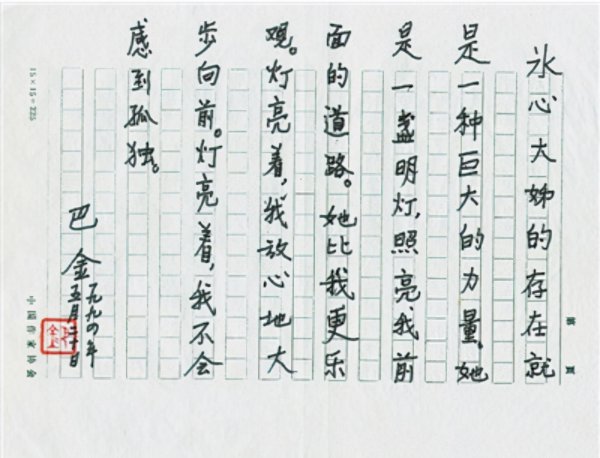 冰心大姊的存在就
是一种巨大的力量，她
是一盏明灯，照亮我前
面的道路。她比我更乐
观。灯亮着，我放心地大
步向前。灯亮着，我不会
感到孤独。
巴金
一九九四年
五月二十日
15×15=225
中国作家协会
第 页